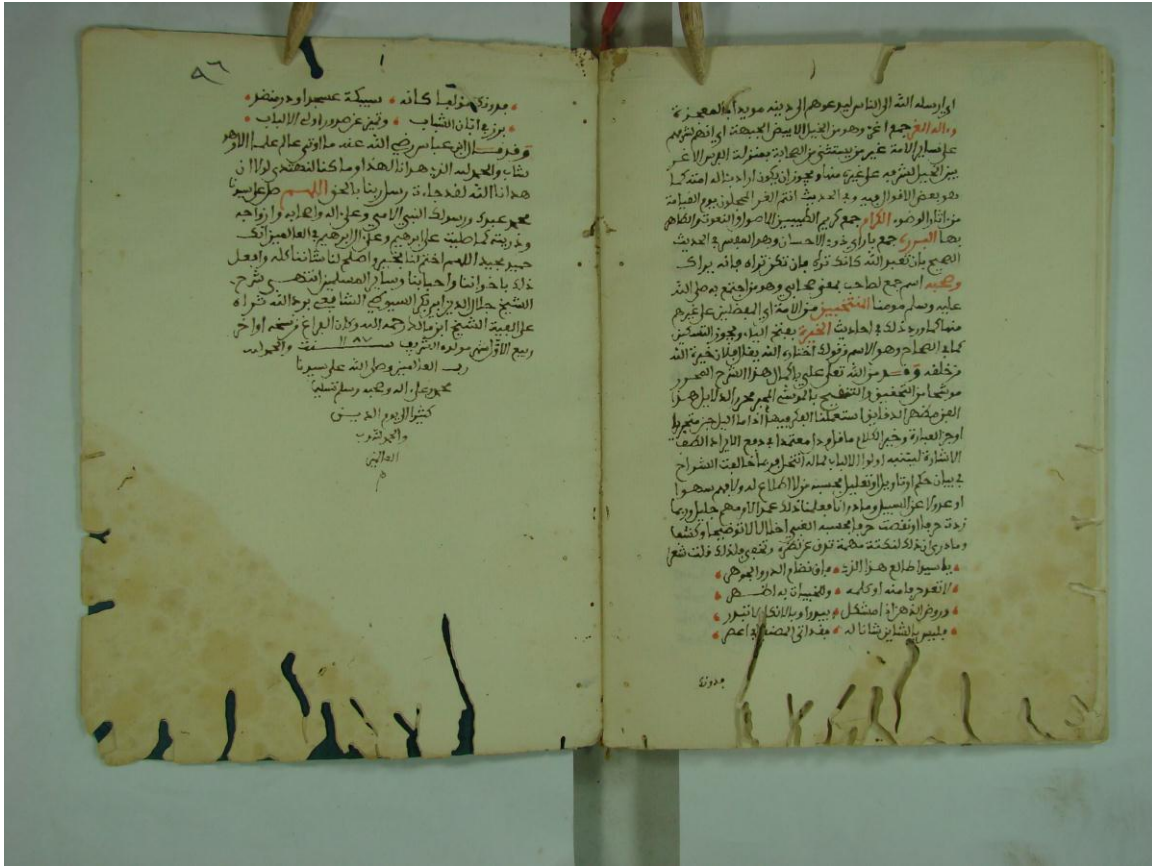 اي ارسله الله الى الناس ليدعوهم الى دينه مويدا بالمعجزة
واله الغر جمع اغر وهو من الخيل الابيض الجبهة اي انهم لشرفهم
على ساير الامة غير من يستثنى من الصحابة بمنزلة الفرس الاغر
بين الخيل لشرفه على غيره منها ويجوز ان يكون اراد باله امته كما
هو بعض الاقوال فيه وفي الحديث انتم الغر المحجلون يوم القيامة
من اثار الوضوء الكرام جمع كريم الطيبين الاصول والنعوت والطاهر
بها البررة جمع بار اي ذوي الاحسان وهو المفسر في الحديث
الصحيح بان تعبد الله كانك تراه فان لم تكن تراه فانه يراك
وصحبه اسم جمع لصاحب بمعنى صحابي وهو من اجتمع به صلى الله
عليه وسلم مومنا المنتخبين من الامة اي المفضلين على غيرهم
منها كما ورد ذلك في احاديث الخيرة بفتح الياء ويجوز التسكين
كما في الصحاح وهو الاسم من قولك اختاره الله يقال فلان خيرة الله
من خلقه وقد من الله تعلى علي باكمال هذا الشرح المحرر
موشحا من التحقيق والتنقيح بالموشى المحبر محرر الدلايل هذا
الفن مظهر الدقايق استعملنا الفكر فيها اذا ما اليل جن متحريا
اوجز العبارة وخير الكلام ما قل ودل معتمدا في دفع الايراد الطف
الاشارة ليتنبه اولوا الالباب لما له انتحل فربما خالفت الشراح
في بيان حكم او تاويل او تعليل فحسبه من لا اطلاع له ولا فهم سهوا
او عدولا عن السبيل وما درى انا فعلنا ذلك عمدا لامر مهم جليل وربما
زدت حرفا او نقصت حرفا فحسبه الغبي اخلالا لا توضيحا وكشفا
وما درى ان ذلك لنكتة مهمة تدق عن نظره وتخفى فلذلك قلت شعرا
يا سيدا طالع هذا الذي • فاق نظام الدر والجوهر
لا تعد حرفا منه او كلمه • وللخبيئات به اظهر
وروض الذهن اذا مشكل • يبدوا وبالانكار لا تبدر
فليس بالشاين شانا له • مقداتى المصنف ابا عصر
فدونك
٩٦
فدونك مولفا كانه • سبيكة عسجد او در منضد •
برز في ابان الشباب • وتميز عن صدور اولى الالباب •
وقد قال ابن عباس رضي الله عنه ما اوتي عالم علما الا وهو
شاب والحمد لله الذي هدانا لهذا وما كنا لنهتدي لولا ان
هدانا الله لقد جاءت رسل ربنا بالحق اللهم صل على سيدنا
محمد عبدك ورسولك النبي الامي وعلى اله واصحابه وازواجه
وذريته كما صليت على ابرهيم وعلى ال ابرهيم في العالمين انك
حميد مجيد اللهم اختم لنا بخير واصلح لنا شاننا كله وافعل
ذلك باخواننا واحبابنا وساير المسلمين انتهى شرح
الشيخ جلال الدين ابي بكر السيوطي الشافعي برد الله ثراه
على الفية الشيخ ابن مالك رحمه الله وكان الفراغ من نسخه اواخر
ربيع الاول شهر مولده الشريف سنة ١١٨٧ والحمد لله
رب العالمين وصلى الله على سيدنا
محمد وعلى اله وصحبه وسلم تسليما
كثيرا الى يوم الدين
والحمد لله رب
العالمين